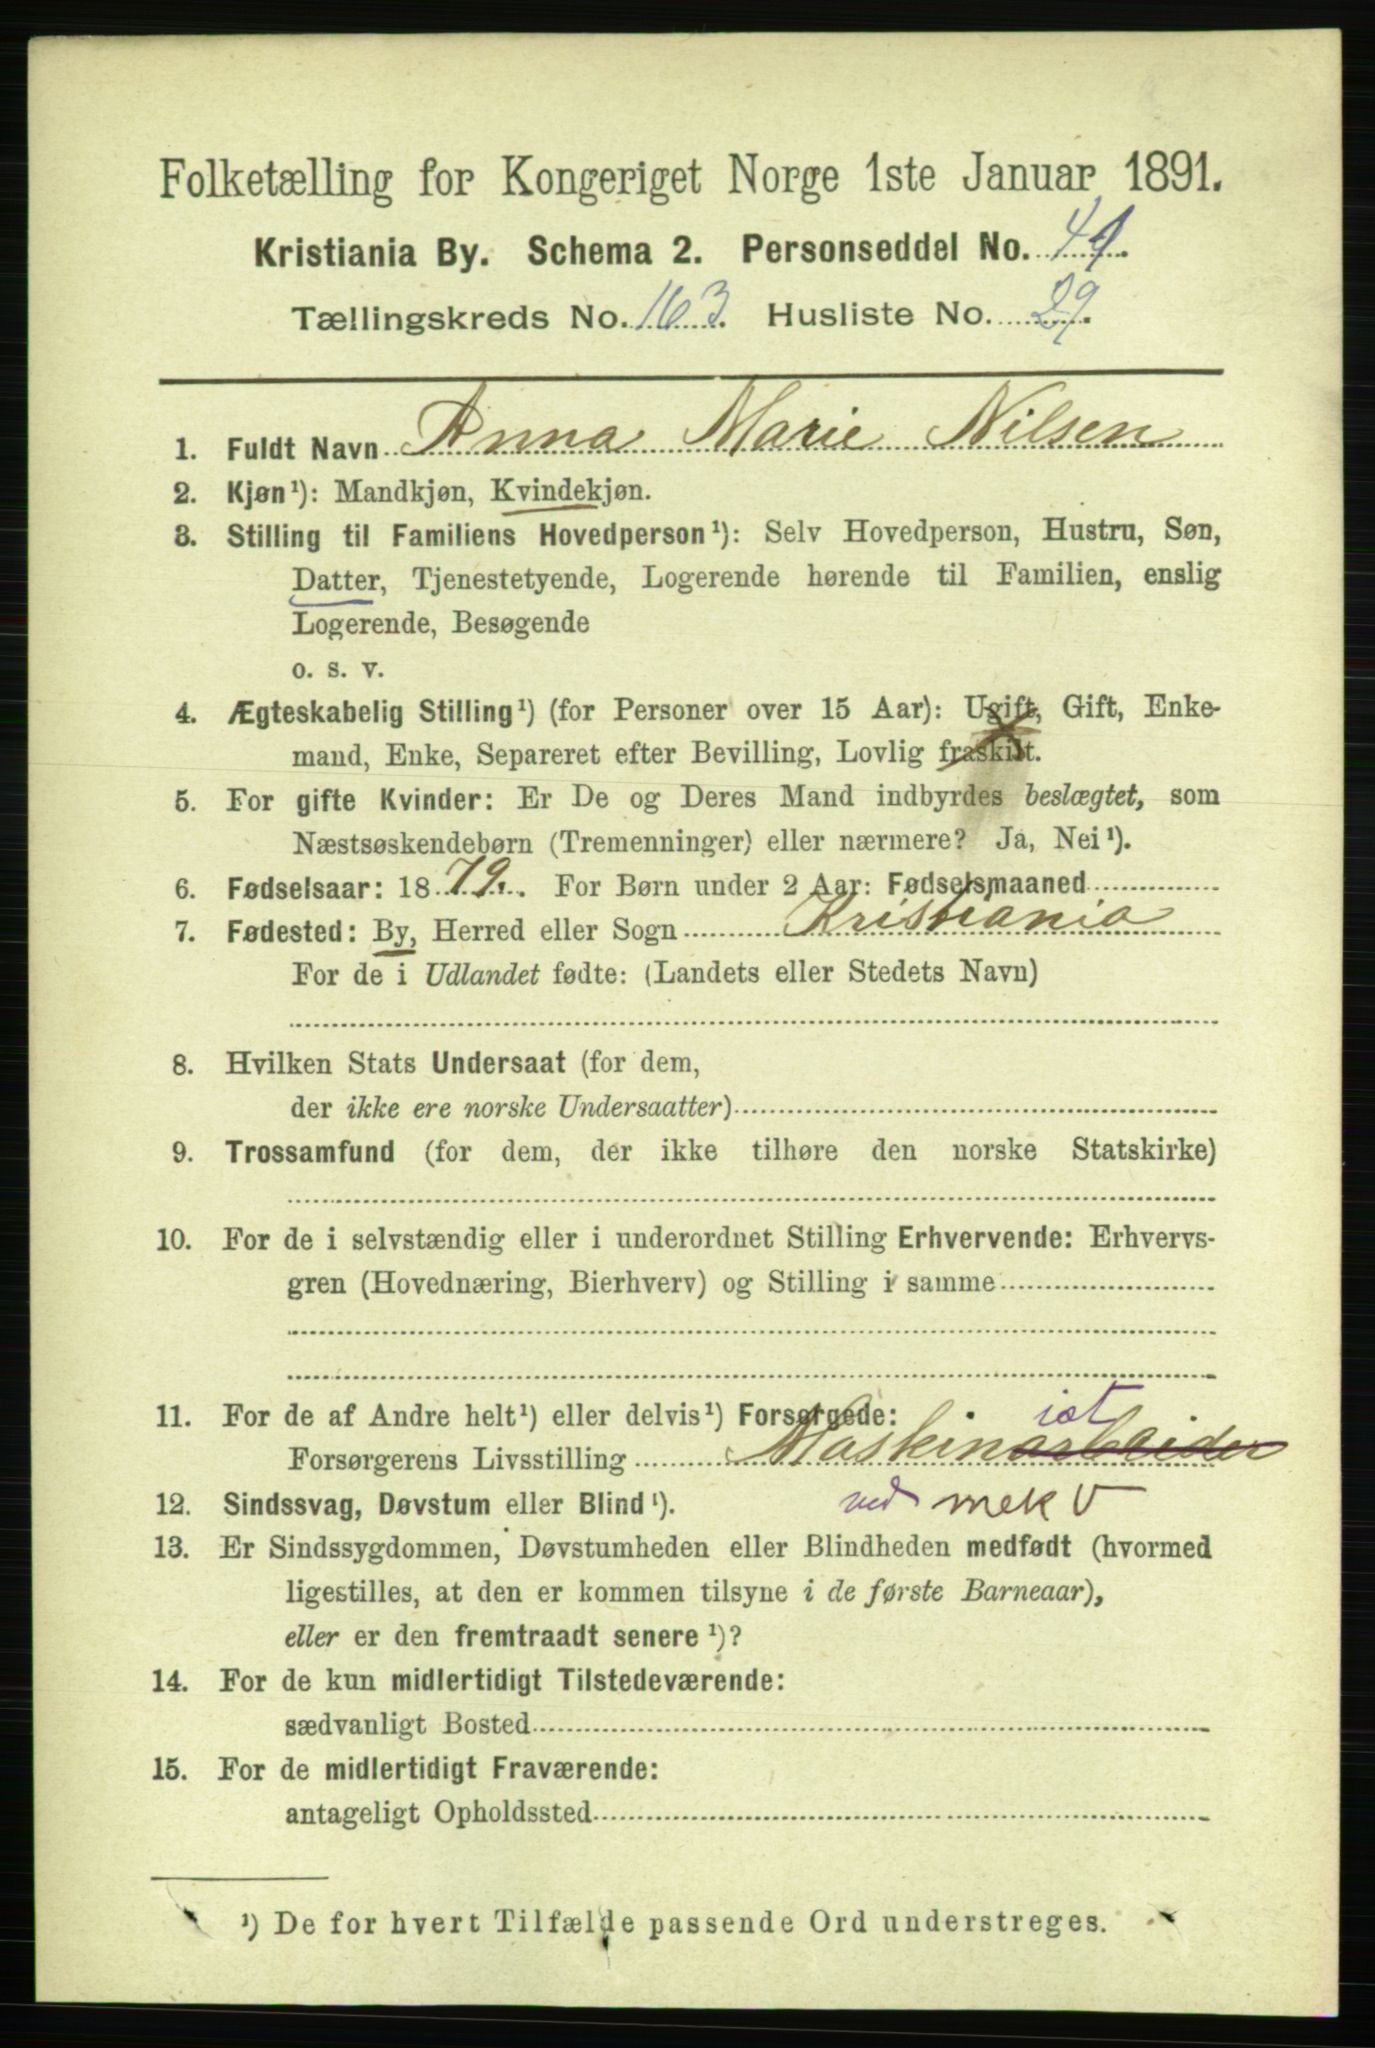 Folketælling for Kongeriget Norge 1ste Januar 1891.
Kristiania By. Schema 2. Personseddel No.
Tællingskreds No. 163. Husliste No. 29.
1. Fuldt Navn Anna Marie Nilsen
2. Kjøn¹): Mandkjøn, Kvindekjøn.
3. Stilling til Familiens Hovedperson¹): Selv Hovedperson, Hustru, Søn,
Datter, Tjenestetyende, Logerende hørende til Familien, enslig
Logerende, Besøgende
o. s. v.
4. Ægteskabelig Stilling¹) (for Personer over 15 Aar): Ugift, Gift, Enke-
mand, Enke, Separeret efter Bevilling, Lovlig fraskilt.
5. For gifte Kvinder: Er De og Deres Mand indbyrdes beslægtet, som
Næstsøskendebørn (Tremenninger) eller nærmere? Ja, Nei¹).
6. Fødselsaar: 1879. For Børn under 2 Aar: Fødselsmaaned
7. Fødested: By, Herred eller Sogn Kristiania
For de i Udlandet fødte: (Landets eller Stedets Navn)
8. Hvilken Stats Undersaat (for dem,
der ikke ere norske Undersaatter)
9. Trossamfund (for dem, der ikke tilhøre den norske Statskirke)
10. For de i selvstændig eller i underordnet Stilling Erhvervende: Erhvervs-
gren (Hovednæring, Bierhverv) og Stilling i samme
11. For de af Andre helt¹) eller delvis¹) Forsørgede:
ist
Forsørgerens Livsstilling Maskinarbeider
12. Sindssvag, Døvstum eller Blind¹). ved mek V
13. Er Sindssygdommen, Døvstumheden eller Blindheden medfødt (hvormed
ligestilles, at den er kommen tilsyne i de første Barneaar),
eller er den fremtraadt senere¹)?
14. For de kun midlertidigt Tilstedeværende:
sædvanligt Bosted
15. For de midlertidigt Fraværende:
antageligt Opholdssted
¹) De for hvert Tilfælde passende Ord understreges.